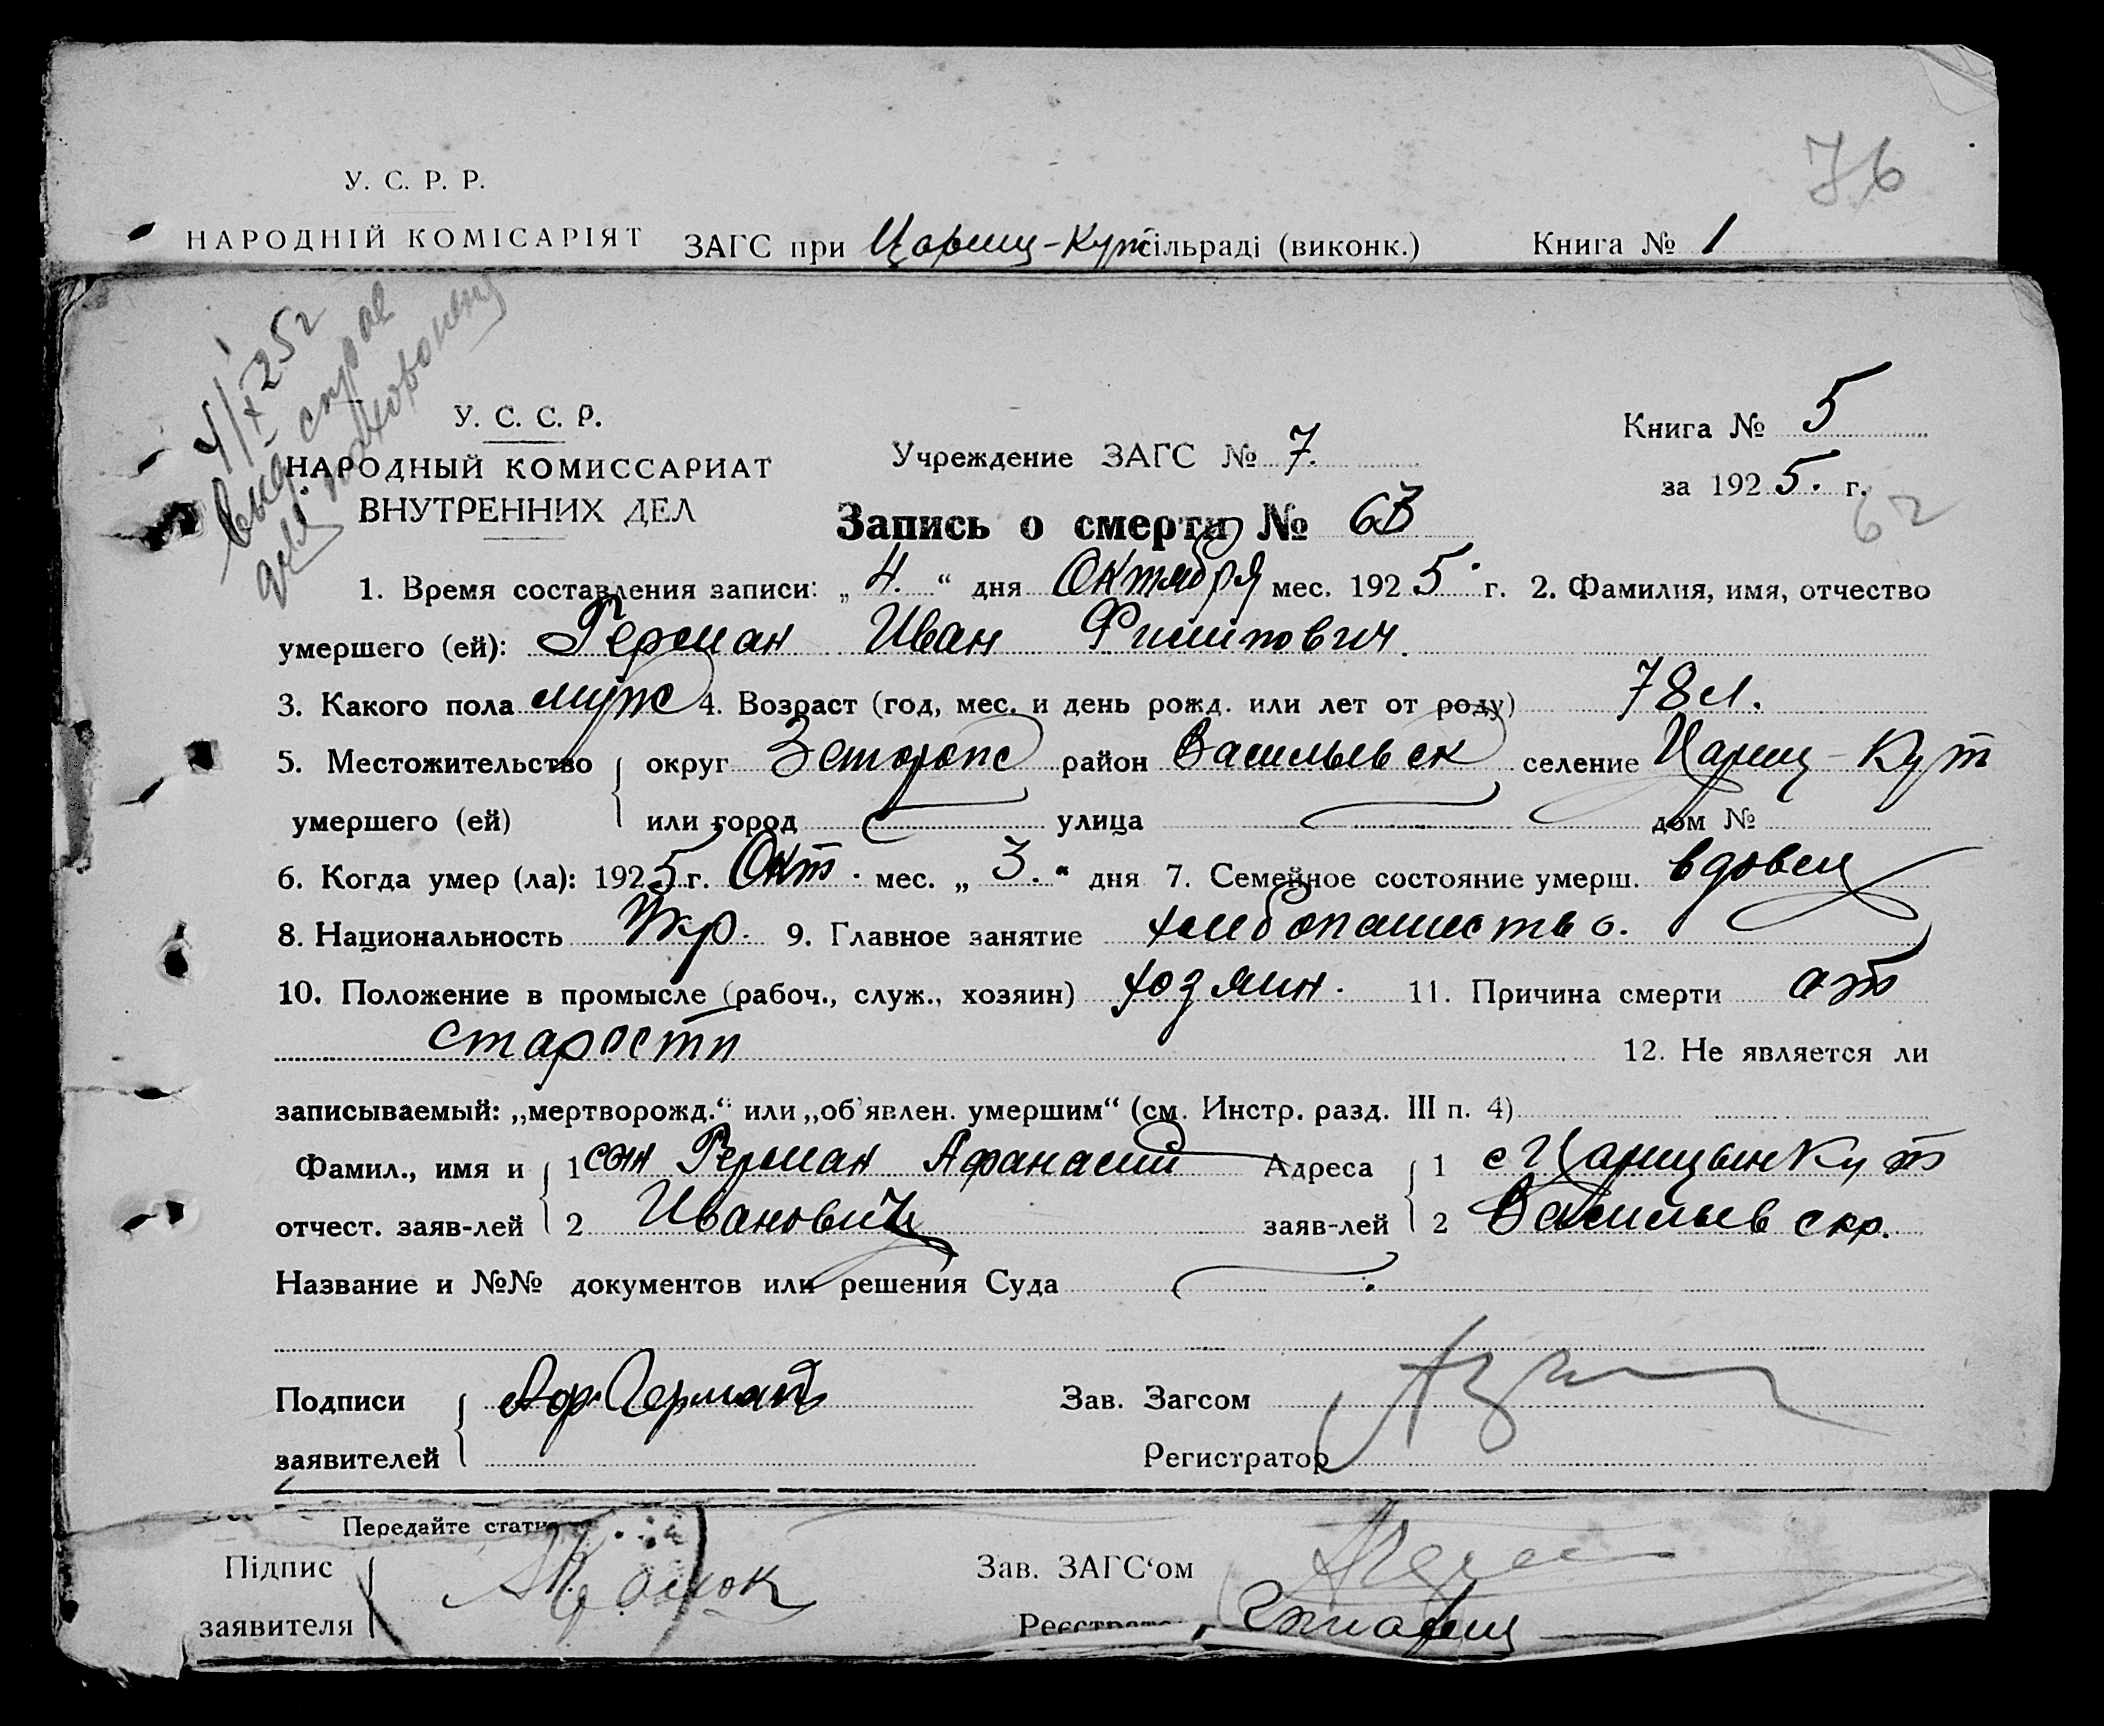 76
У. С. Р. Р.
НАРОДНІЙ КОМІСАРІЯТ ЗАГС при Цариц-Кут сільраді (виконк.) Книга № 1
4/X 25 г
выд. справ
для похорон
У. С. С. Р.
НАРОДНЫЙ КОМИССАРИАТ
ВНУТРЕННИХ ДЕЛ
Учреждение ЗАГС № 7.
Книга № 5
за 1925. г.
62
Запись о смерти № 63
1. Время составления записи: „4.“ дня Октября мес. 1925. г. 2. Фамилия, имя, отчество
умершего (ей): Герман Иван Филипович.
3. Какого пола муж 4. Возраст (год, мес. и день рожд. или лет от роду) 78 л.
5. Местожительство округ Запорож район Васильевск селение Цариц-Кут
умершего (ей) или город улица дом №
6. Когда умер (ла): 1925 г. Окт. мес. „3.“ дня 7. Семейное состояние умерш. вдовец
8. Национальность Укр. 9. Главное занятие хлебопашество.
10. Положение в промысле (рабоч., служ., хозяин) хозяин. 11. Причина смерти от
старости 12. Не является ли
записываемый: „мертворожд.“ или „об'явлен. умершим“ (см. Инстр. разд. III п. 4)
Фамил., имя и 1 сын Герман Афанасий Адреса 1 с Царицын Кут
отчест. заяв-лей 2 Иванович заяв-лей 2 Васильев скр.
Название и №№ документов или решения Суда
Подписи Аф. Герман Зав. Загсом
заявителей Регистратор
Передайте стати
Підпис Зав. ЗАГС‘ом
заявителя Реєстрато